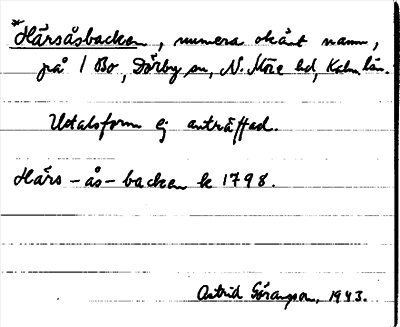 *Härsåsbacken, numera okänt namn,
på 1 Bo, Dörby sn, N. Möre hd, Kalm. län.
Uttalsform ej anträffad.
Härs-ås-backen k 1798.
Astrid Göransson, 1943.